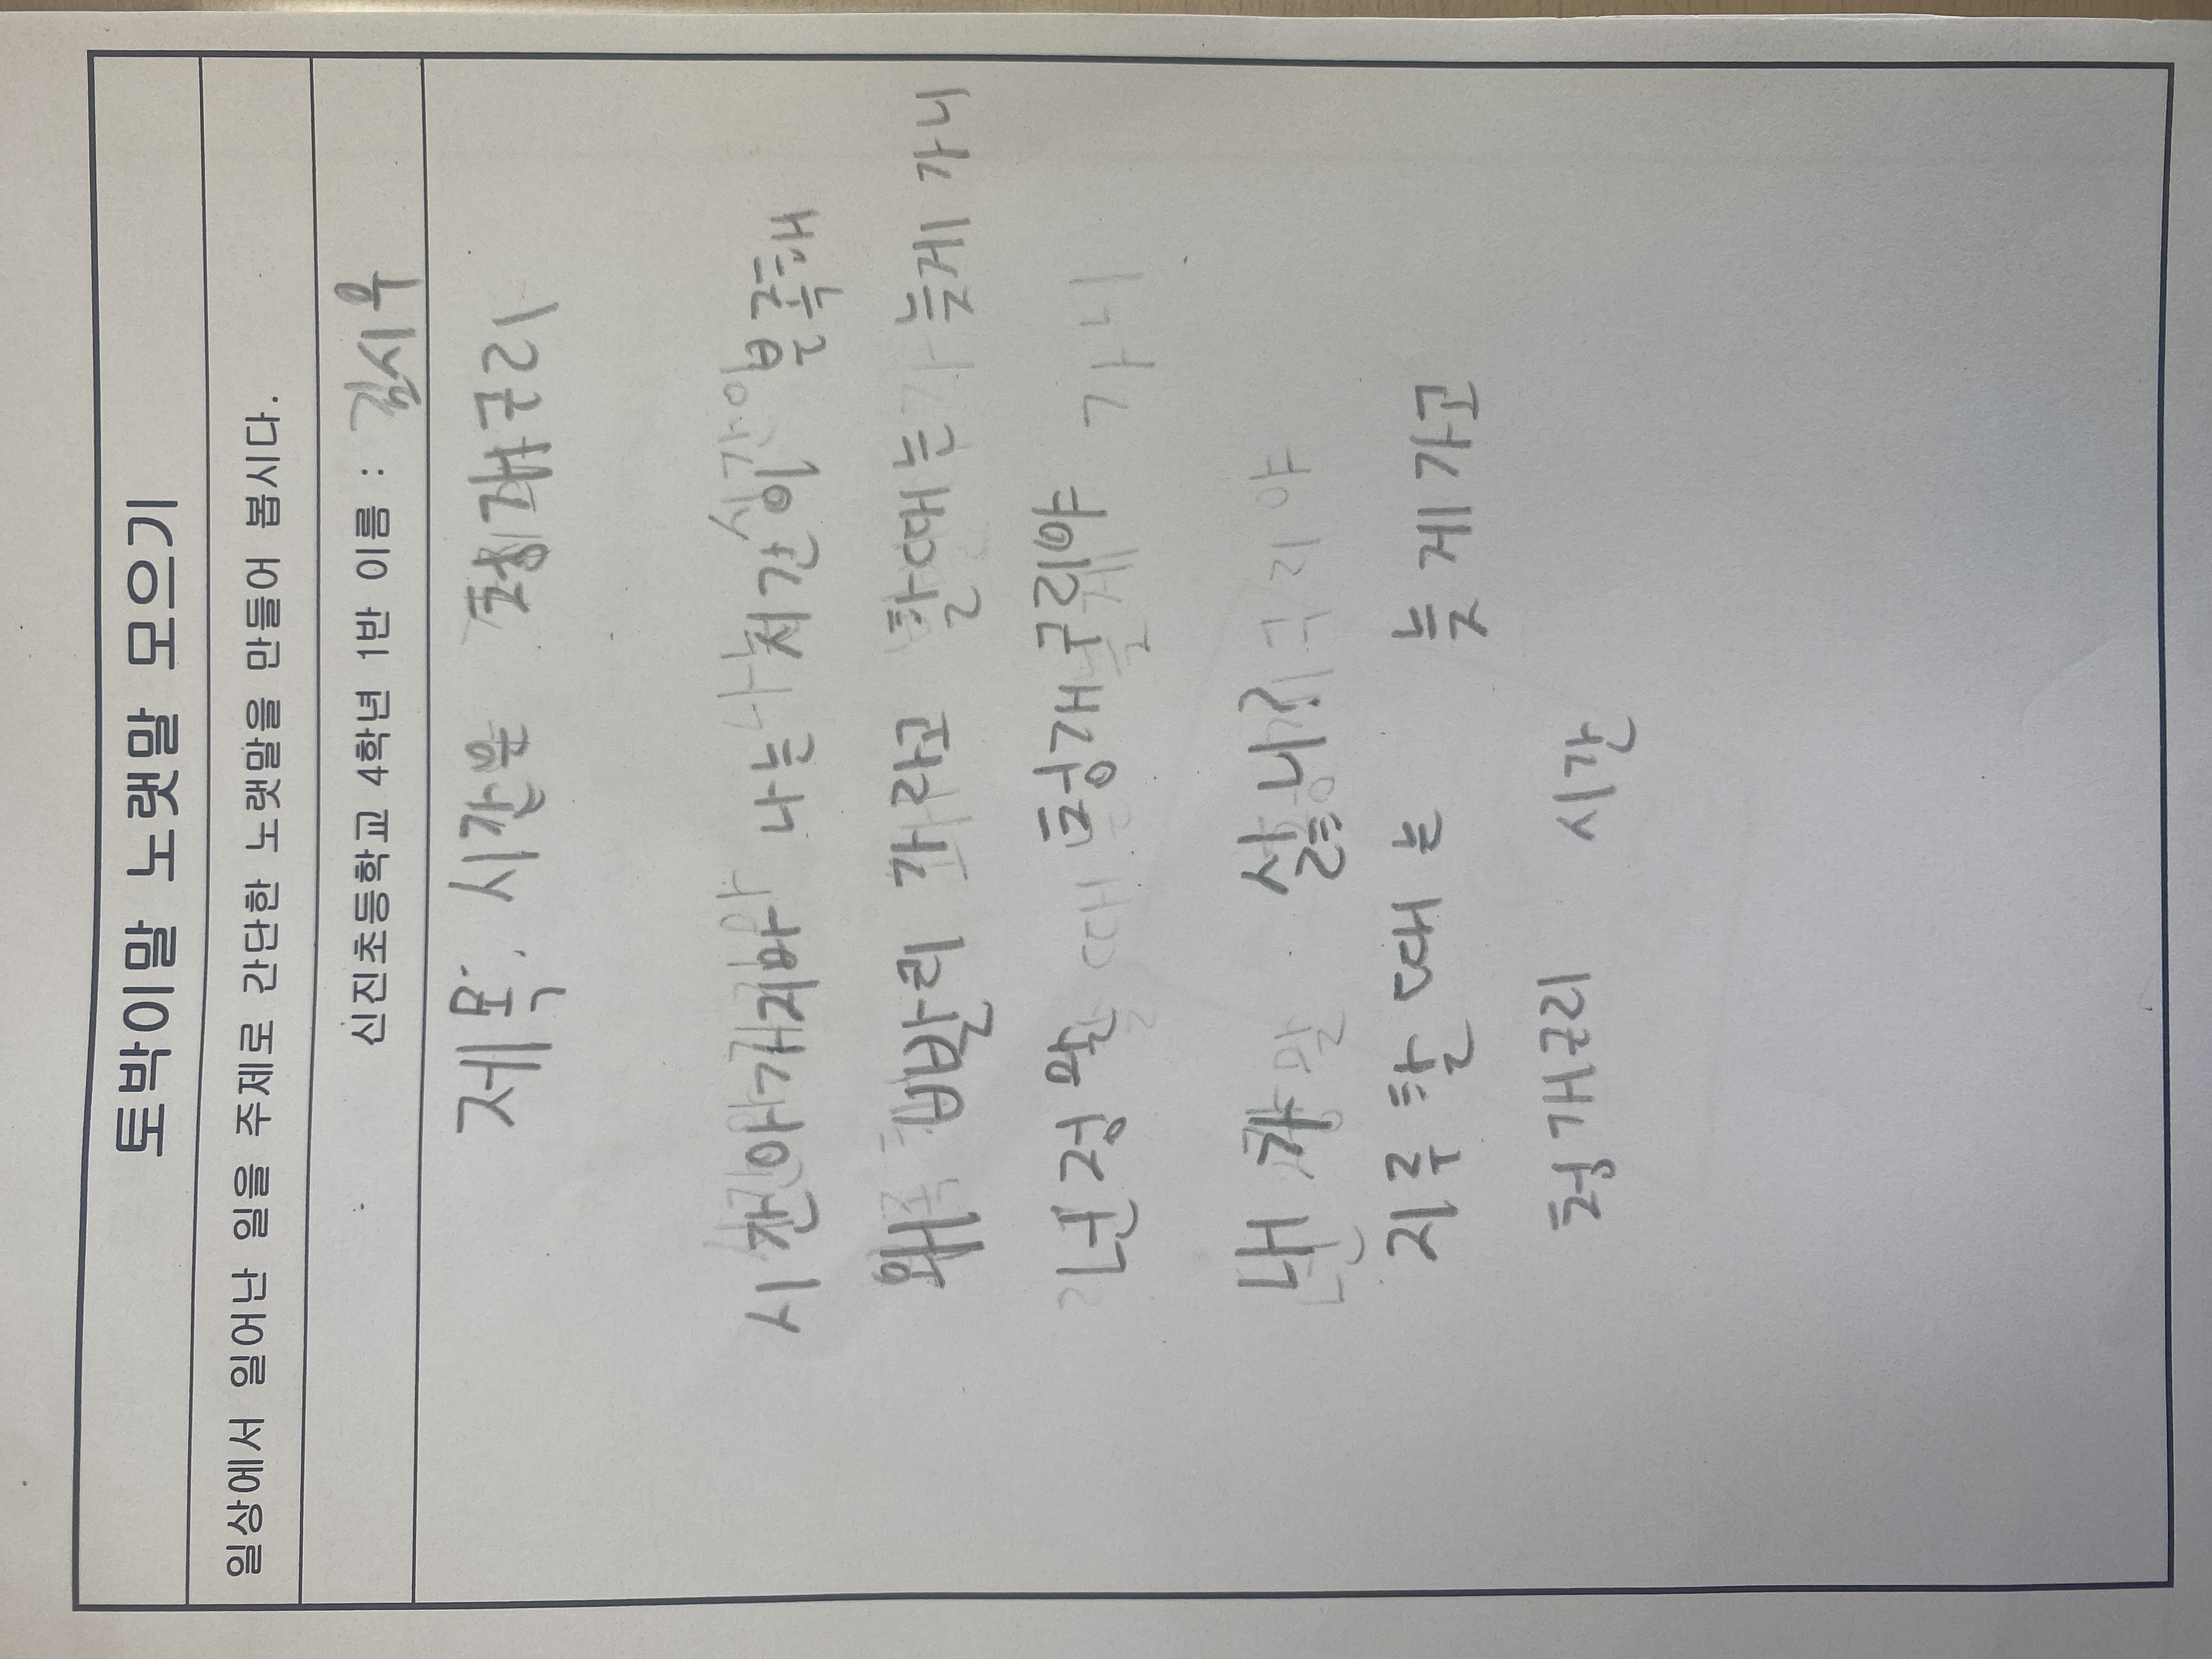 토박이말 노랫말 모으기
일상에서 일어난 일을 주제로 간단한 노랫말을 만들어 봅시다.
신진초등학교 4학년 1반 이름 : 김시우
제목: 시간은 청개구리
시간아 나는 시간이 부족해
왜 빨리 가라고 할때는 늦게 가니
넌 정말 청개구리야
내가 싫니?
지루할 때는 늦게가고
청개구리 시간